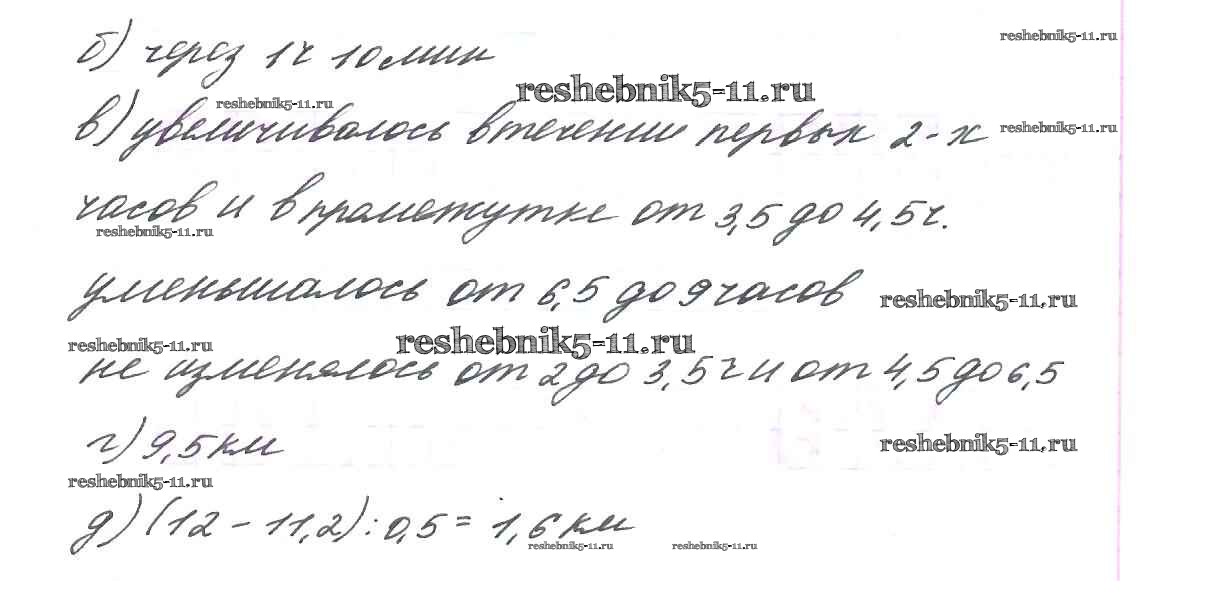 reshebnik5-11.ru
б) через 1ч 10 мин
reshebnik5-11.ru
reshebnik5-11.ru
в) увеличивалось втечении первых 2-х
reshebnik5-11.ru
часов и в промежутке от 3,5 до 4,5 ч.
reshebnik5-11.ru
уменьшалось от 6,5 до 9 часов
reshebnik5-11.ru
reshebnik5-11.ru
reshebnik5-11.ru
не изменялось от 2 до 3,5 ч и от 4,5 до 6,5
г) 9,5 км
reshebnik5-11.ru
reshebnik5-11.ru
д) (12 - 11,2) : 0,5 = 1,6 км
reshebnik5-11.ru
reshebnik5-11.ru